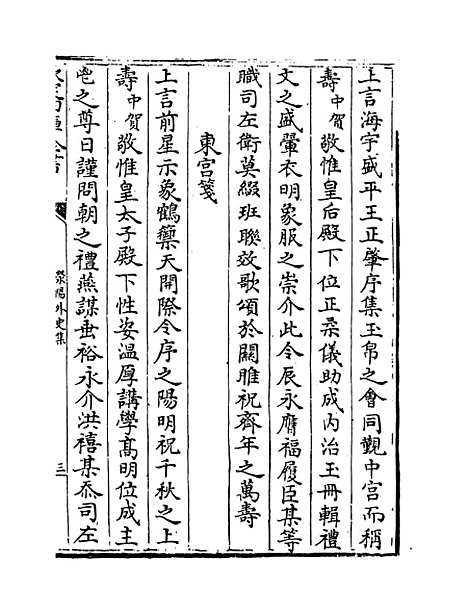 上言海宇盛平王正肇序集玉帛之會同覲中宮而稱
壽中賀敬惟皇后殿下位正柔儀助成内治玉冊輯禮
文之盛翬衣明象服之崇介此令辰永膺福履臣某等
職司左衛莫綴班聯效歌頌於關雎祝齊年之萬壽
東宮箋
上言前星示象鶴籥天開際令序之陽明祝千秋之上
壽中賀敬惟皇太子殿下性姿温厚講學髙明位成主
鬯之尊日謹問朝之禮燕謀垂裕永介洪禧某忝司左
滎陽外史集
三